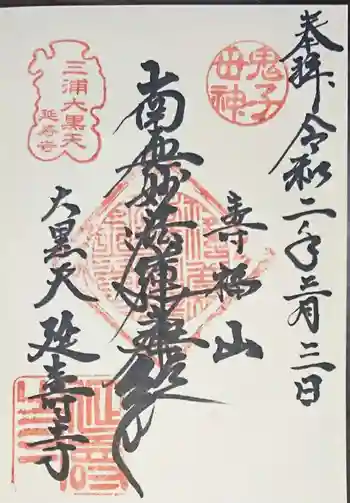 奉拝 令和二年三月三日
鬼子母神
寿福山
南無妙法蓮華経
三浦大黒天
延寿寺
大黒天 延寿寺